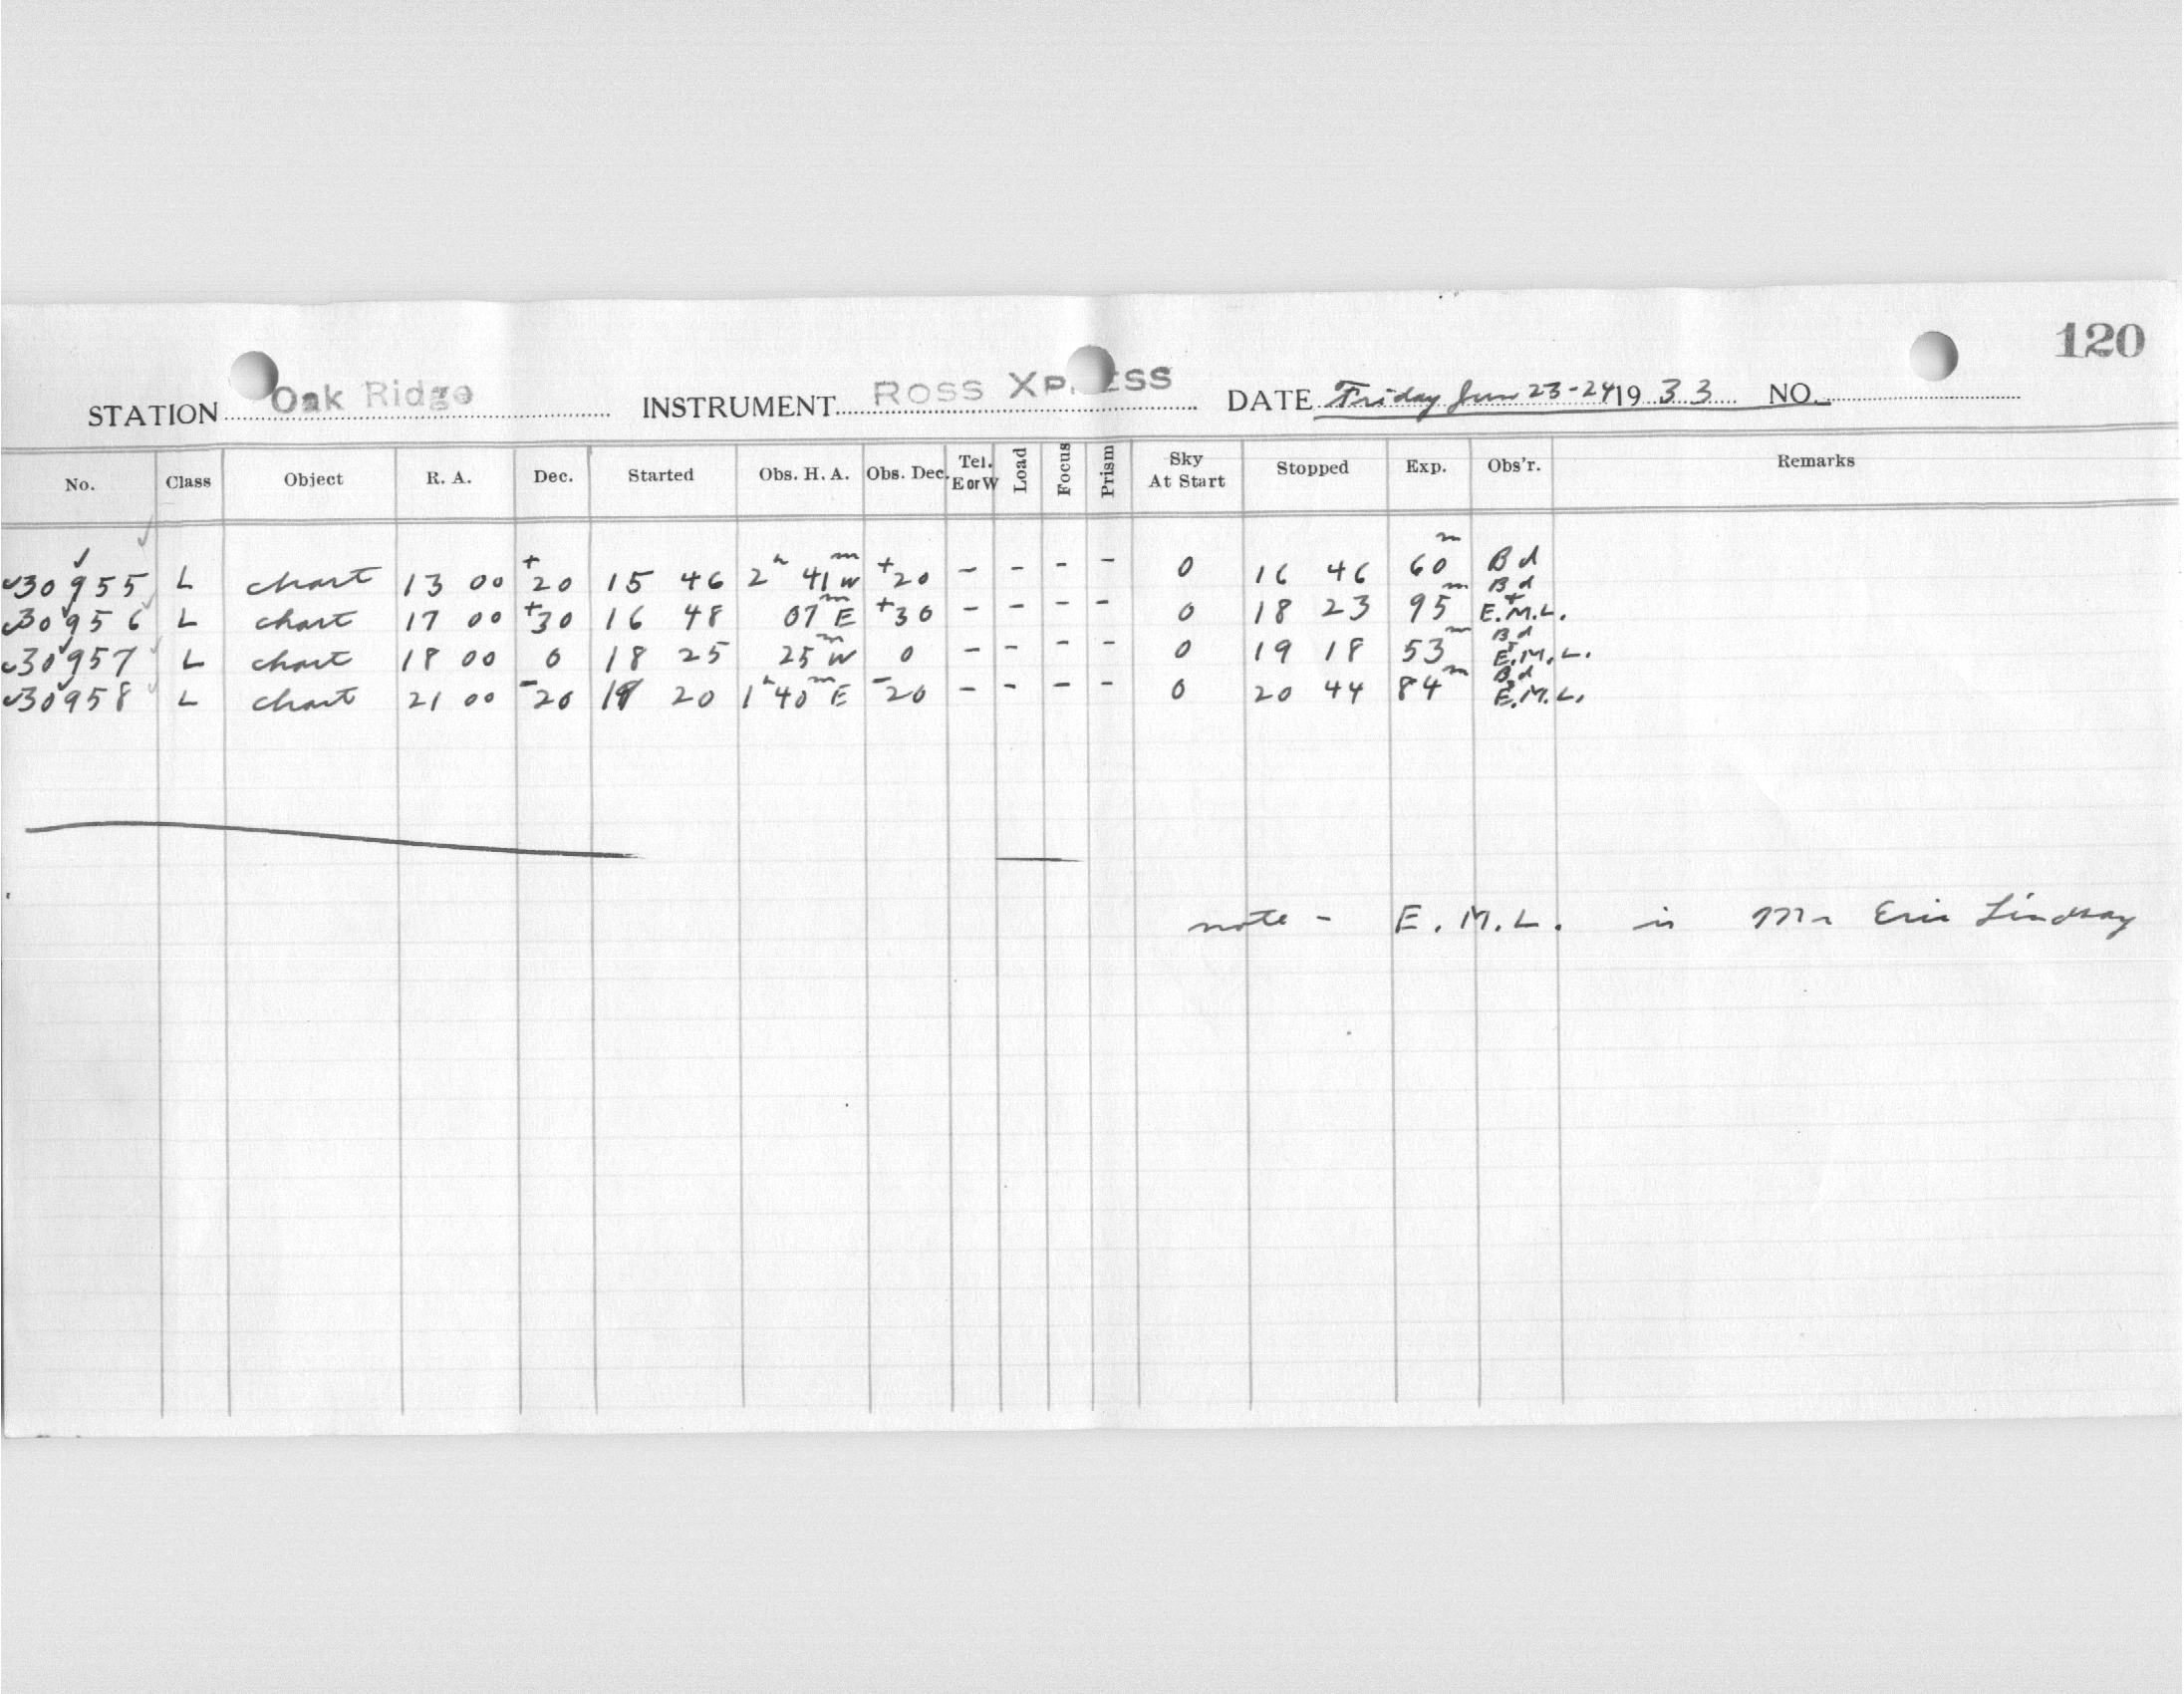 120
STATION Oak Ridge INSTRUMENT ROSS XP ESS DATE Friday Jun 23-24 1933 NO.
No. Class Object R. A. Dec. Started Obs. H. A. Obs. Dec. Tel. E or W Load Focus Prism Sky At Start Stopped Exp. Obs'r. Remarks
30955 L chart 13 00 +20 15 46 2h 41m W +20 - - - - 0 16 46 60m Bd
30956 L chart 17 00 +30 16 48 07m E +30 - - - - 0 18 23 95m Bd + E.M.L.
30957 L chart 18 00 0 18 25 25m W 0 - - - - 0 19 18 53m Bd + E.M.L.
30958 L chart 21 00 -20 19 20 1h 40m E -20 - - - - 0 20 44 84m Bd E.M.L.
note - E.M.L. is Mr Eric Lindsay